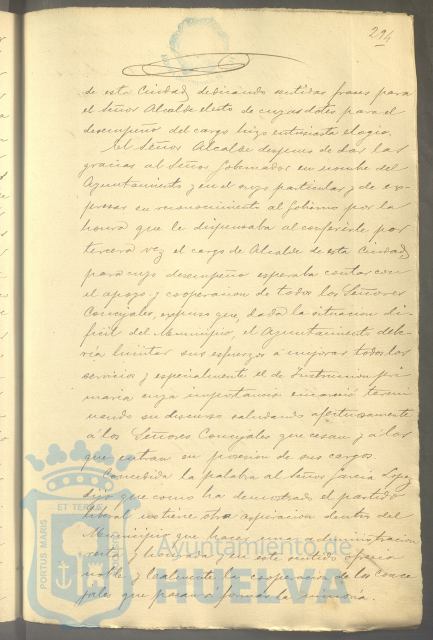 294
de esta Ciudad, dedicando sentidas frases para
el Señor Alcalde electo de cuyas dotes para el
desempeño del cargo hizo entusiasta elogio.
El Señor Alcalde despues de dar las
gracias al Señor Gobernador en nombre del
Ayuntamiento y en el suyo particular y de ex-
presar su reconocimiento al Gobierno por la
honra que le dispensaba al conferirle por
tercera vez el cargo de Alcalde de esta Ciudad,
para cuyo desempeño esperaba contar con
el apoyo y cooperacion de todos los Señores
Concejales, expuso que, dada la situacion di-
ficil del Municipio, el Ayuntamiento debe-
ria limitar sus esfuerzos a mejorar todos los
servicios y especialmente el de Instruccion pri-
maria cuya importancia encareció termi-
nando su discurso saludando afectuosamente
á los Señores Concejales que cesan y á los
que entran en posesion de sus cargos.
Concedida la palabra al Señor Garcia Lopez
dijo que como ha demostrado el partido
liberal no tiene otra aspiracion dentro del
Municipio que hacer una administracion
recta y honrada y en este sentido ofrecia
noble y lealmente la cooperacion de los Conce-
jales que pasan a formar la minoria.
PORTUS MARIS
ET TERRE
Ayuntamiento de
HUELVA